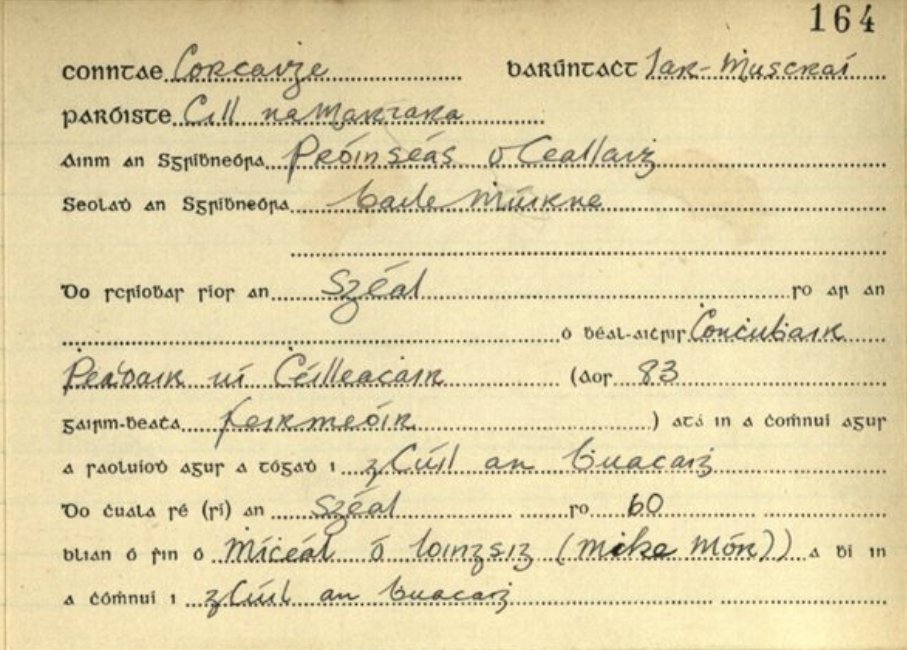 164
Conntae Corcaiġe Barúntaċt Iar-Muscraí
Paróiste Cill na Martara
Ainm an Sgríḃneóra Próinséas Ó Ceallaiġ
Seolaḋ an Sgríḃneóra Baile Ṁúirne
Do scríoḃas síos an Sgéal so ar an
ó ḃéal-aiṫris Conċuḃair
Peadair uí Céilleacair (Aois 83
gairm-ḃeaṫa feirmeóir ) atá in a ċoṁnuí agus
a saoluíoḋ agus a tógaḋ i gCúil an Buacaiġ
Do ċuala sé (sí) an sgéal so 60
blian ó ṡin ó Míċeál ó Loingsiġ (Mike Mór)) a ḃí in
a ċóṁnuí i gCúil an Buacaiġ